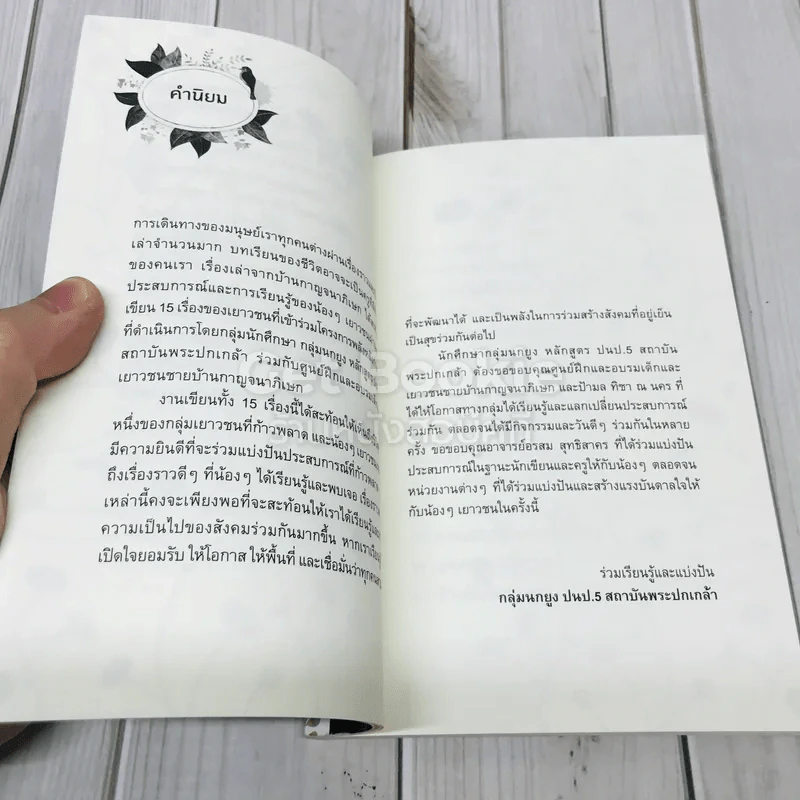 คำนิยม
การเดินทางของมนุษย์เราทุกคนต่างผ่านเรื่องราว
เล่าจำนวนมาก บทเรียนของชีวิตอาจจะเป็น
ของคนเรา เรื่องเล่าจากบ้านกาญจนาภิเษก
ประสบการณ์และการเรียนรู้ของน้องๆ เยาวชน
เขียน 15 เรื่องของเยาวชนที่เข้าร่วมโครงการ
ที่ดำเนินการโดยกลุ่มนักศึกษา กลุ่มนกยูง
สถาบันพระปกเกล้า ร่วมกับศูนย์ฝึกและ
เยาวชนชายบ้านกาญจนาภิเษก
งานเขียนทั้ง 15 เรื่องนี้ได้สะท้อนให้
หนึ่งของกลุ่มเยาวชนที่ก้าวพลาด และน้องๆ
มีความยินดีที่จะร่วมแบ่งปันประสบการณ์ที่
ถึงเรื่องราวดีๆ ที่น้องๆ ได้เรียนรู้และพบเจอ
เหล่านี้คงจะเพียงพอที่จะสะท้อนให้เราได้
ความเป็นไปของสังคมร่วมกันมากขึ้น
เปิดใจยอมรับ ให้โอกาส ให้พื้นที่ และเชื่อมั่นว่า
ที่จะพัฒนาได้ และเป็นพลังในการร่วมสร้างสังคมที่อยู่เย็น
เป็นสุขร่วมกันต่อไป
นักศึกษากลุ่มนกยูง หลักสูตร ปนป.5 สถาบัน
พระปกเกล้า ต้องขอขอบคุณศูนย์ฝึกและอบรมเด็กและ
เยาวชนชายบ้านกาญจนาภิเษก และป้ามล ทิชา ณ นคร ที่
ได้ให้โอกาสทางกลุ่มได้เรียนรู้และแลกเปลี่ยนประสบการณ์
ร่วมกัน ตลอดจนได้มีกิจกรรมและวันดีๆ ร่วมกันในหลาย
ครั้ง ขอขอบคุณอาจารย์อรสม สุทธิสาคร ที่ได้ร่วมแบ่งปัน
ประสบการณ์ในฐานะนักเขียนและครูให้กับน้องๆ ตลอดจน
หน่วยงานต่างๆ ที่ได้ร่วมแบ่งปันและสร้างแรงบันดาลใจให้
กับน้องๆ เยาวชนในครั้งนี้
ร่วมเรียนรู้และแบ่งปัน
กลุ่มนกยูง ปนป.5 สถาบันพระปกเกล้า